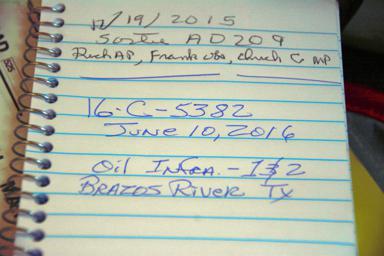 11/19/2015
Sortie AD209
Rich AP, Frank Obs, Chuck C MP
16-C-5382
June 10, 2016
Oil Infra. - 1 & 2
Brazos River Tx